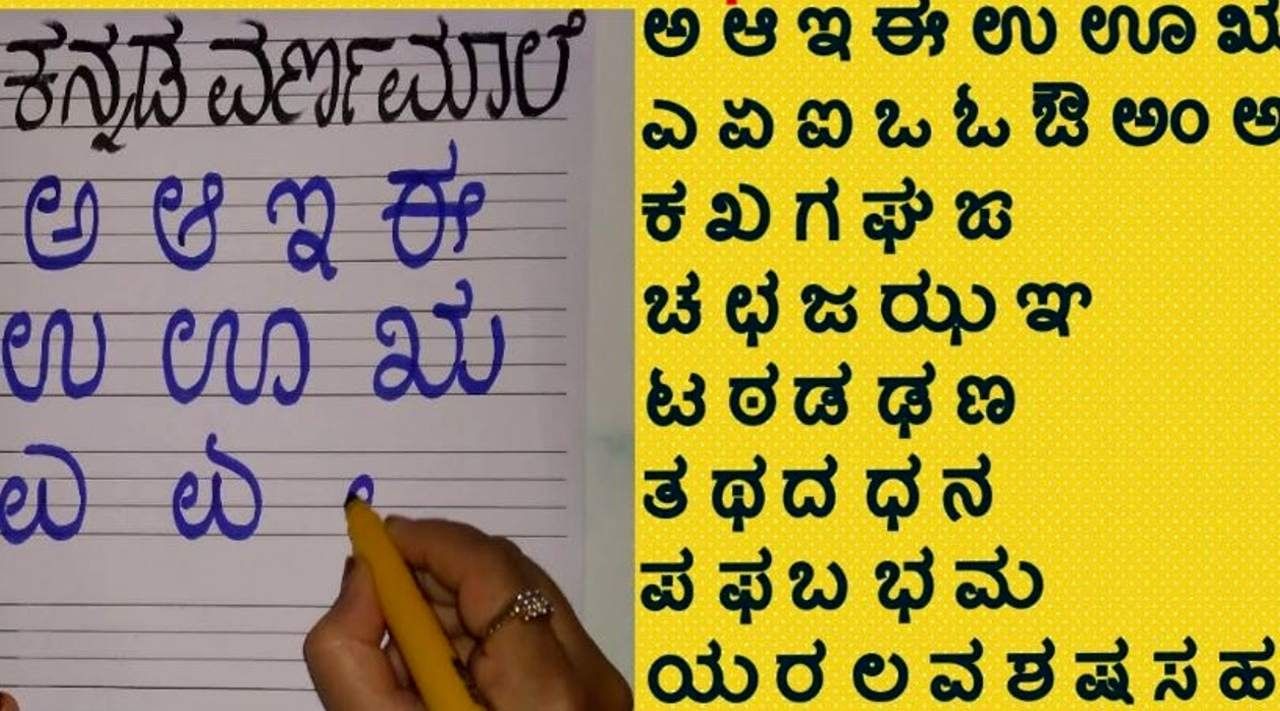 ಕನ್ನಡ ವರ್ಣಮಾಲೆ
ಅ ಆ ಇ ಈ
ಉ ಊ ಋ
ಎ ಏ
ಅ ಆ ಇ ಈ ಉ ಊ ಋ
ಎ ಏ ಐ ಒ ಓ ಔ ಅಂ ಅ
ಕ ಖ ಗ ಘ ಙ
ಚ ಛ ಜ ಝ ಞ
ಟ ಠ ಡ ಢ ಣ
ತ ಥ ದ ಧ ನ
ಪ ಫ ಬ ಭ ಮ
ಯ ರ ಲ ವ ಶ ಷ ಸ ಹ